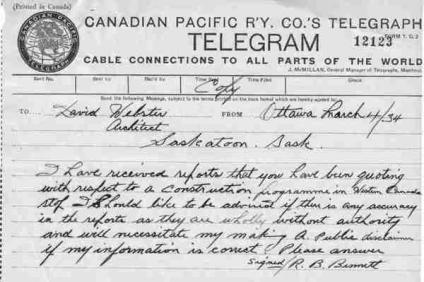 (Printed in Canada)
CANADIAN PACIFIC R'Y. CO.'S TELEGRAPH
TELEGRAM
FORM T.D.2
12123
CABLE CONNECTIONS TO ALL PARTS OF THE WORLD
J. McMILLAN, General Manager of Telegraphs, Montreal
CANADIAN PACIFIC
TELEGRAPH
Sent No. Sent by Rec'd by Time Sent Time Filed Check
Copy
Send the following Message, subject to the terms printed on the back hereof which are hereby agreed to
TO David Webster FROM Ottawa March 4/34
Architect
Saskatoon, Sask.
I have received reports that you have been quoting
with respect to a construction programme in Western Canada
stop I should like to be advised if there is any accuracy
in the reports as they are wholly without authority
and will necessitate my making a public disclaimer
if my information is correct. Please answer
Signed/ R. B. Bennett